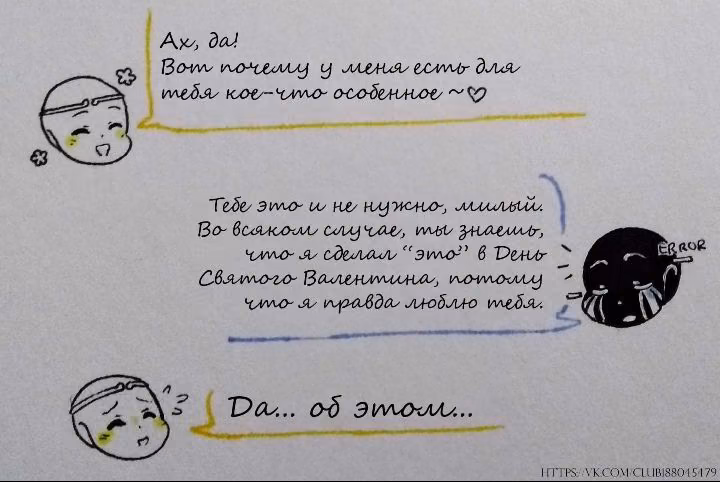 Ах, да!
Вот почему у меня есть для
тебя кое-что особенное ~♡
Тебе это и не нужно, милый.
Во всяком случае, ты знаешь,
что я сделал “это” в День
ERROR
Святого Валентина, потому
что я правда люблю тебя.
Да... об этом...
HTTPS://VK.COM/CLUB188045479